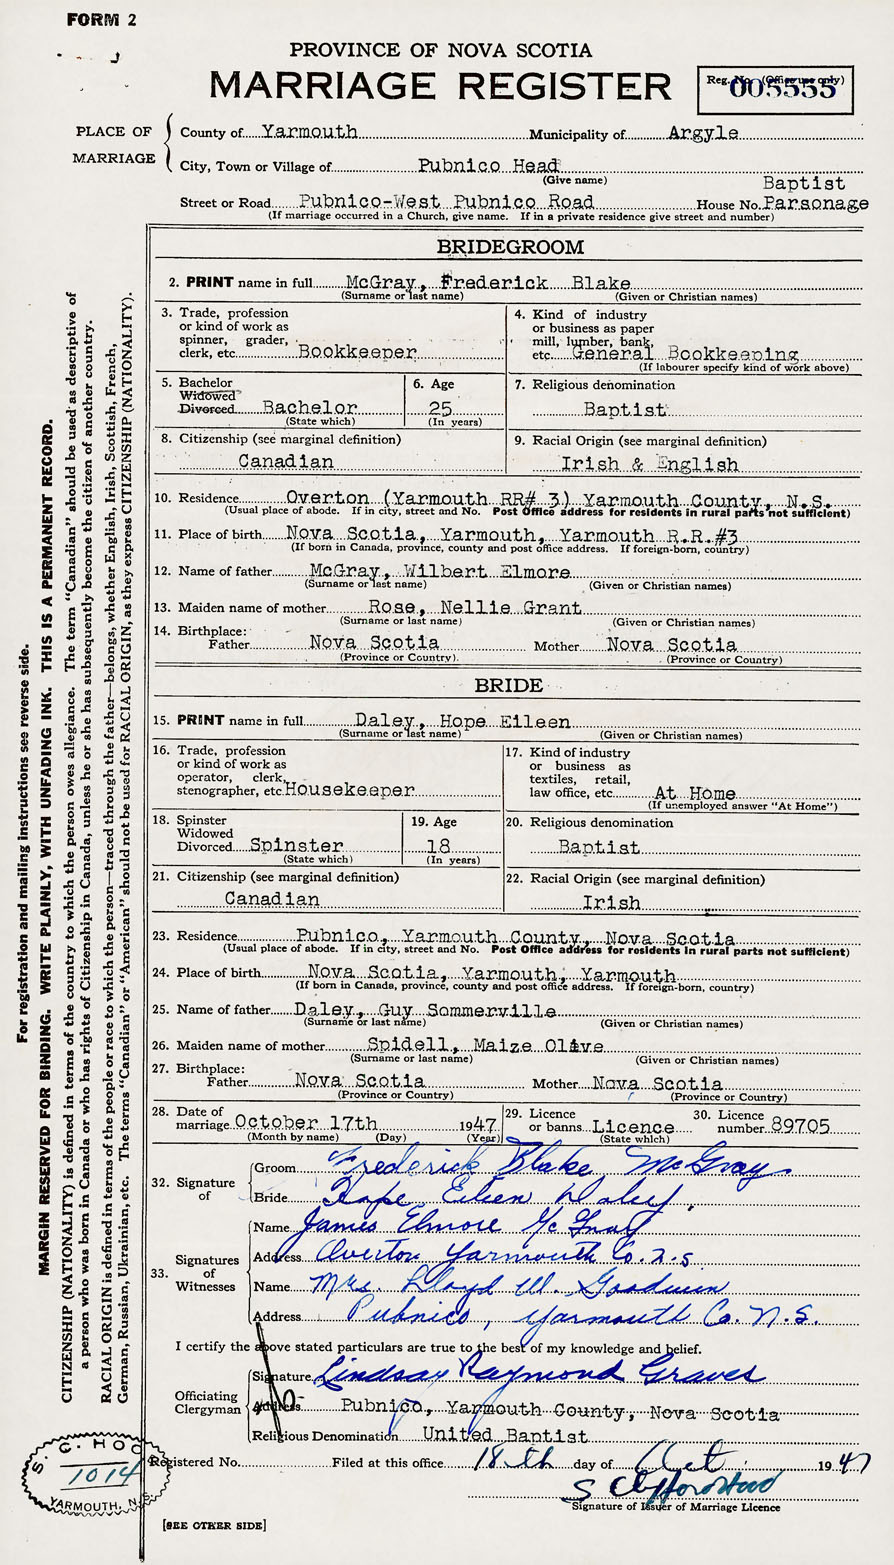 FORM 2
PROVINCE OF NOVA SCOTIA
MARRIAGE REGISTER
Reg. No. (Office use only)
005555
PLACE OF MARRIAGE
County of Yarmouth Municipality of Argyle
City, Town or Village of Pubnico Head
(Give name)
Baptist
Street or Road Pubnico-West Pubnico Road House No. Parsonage
(If marriage occurred in a Church, give name. If in a private residence give street and number)
BRIDEGROOM
2. PRINT name in full McGray, Frederick Blake
(Surname or last name) (Given or Christian names)
3. Trade, profession
or kind of work as
spinner, grader,
clerk, etc. Bookkeeper
4. Kind of industry
or business as paper
mill, lumber, bank,
etc. General Bookkeeping
(If labourer specify kind of work above)
5. Bachelor
Widowed
Divorced Bachelor
(State which)
6. Age
25
(In years)
7. Religious denomination
Baptist
8. Citizenship (see marginal definition)
Canadian
9. Racial Origin (see marginal definition)
Irish & English
10. Residence Overton (Yarmouth RR# 3) Yarmouth County, N.S.
(Usual place of abode. If in city, street and No. Post Office address for residents in rural parts not sufficient)
11. Place of birth Nova Scotia, Yarmouth, Yarmouth R.R.#3
(If born in Canada, province, county and post office address. If foreign-born, country)
12. Name of father McGray, Wilbert Elmore
(Surname or last name) (Given or Christian names)
13. Maiden name of mother Rose, Nellie Grant
(Surname or last name) (Given or Christian names)
14. Birthplace:
Father Nova Scotia Mother Nova Scotia
(Province or Country) (Province or Country)
BRIDE
15. PRINT name in full Daley, Hope Eileen
(Surname or last name) (Given or Christian names)
16. Trade, profession
or kind of work as
operator, clerk,
stenographer, etc. Housekeeper
17. Kind of industry
or business as
textiles, retail,
law office, etc. At Home
(If unemployed answer "At Home")
18. Spinster
Widowed
Divorced Spinster
(State which)
19. Age
18
(In years)
20. Religious denomination
Baptist
21. Citizenship (see marginal definition)
Canadian
22. Racial Origin (see marginal definition)
Irish
23. Residence Pubnico, Yarmouth County, Nova Scotia
(Usual place of abode. If in city, street and No. Post Office address for residents in rural parts not sufficient)
24. Place of birth Nova Scotia, Yarmouth, Yarmouth
(If born in Canada, province, county and post office address. If foreign-born, country)
25. Name of father Daley, Guy Sommerville
(Surname or last name) (Given or Christian names)
26. Maiden name of mother Spidell, Maize Olive
(Surname or last name) (Given or Christian names)
27. Birthplace:
Father Nova Scotia Mother Nova Scotia
(Province or Country) (Province or Country)
28. Date of
marriage October 17th 1947
(Month by name) (Day) (Year)
29. Licence
or banns Licence
(State which)
30. Licence
number 89705
32. Signature of
Groom Frederick Blake McGray
Bride Hope Eileen Daley
33. Signatures of Witnesses
Name James Elmore McGray
Address Overton Yarmouth Co. N.S.
Name Mrs. Lloyd W. Goodwin
Address Pubnico, Yarmouth Co. N.S.
I certify the above stated particulars are true to the best of my knowledge and belief.
Officiating Clergyman
Signature Lindsay Raymond Graves
Address Pubnico, Yarmouth County, Nova Scotia
Religious Denomination United Baptist
Registered No. Filed at this office 18th day of Oct 1947
Signature of Issuer of Marriage Licence
[SEE OTHER SIDE]
S. C. HOOD
1014
YARMOUTH, N.S.
For registration and mailing instructions see reverse side.
MARGIN RESERVED FOR BINDING. WRITE PLAINLY, WITH UNFADING INK. THIS IS A PERMANENT RECORD.
CITIZENSHIP (NATIONALITY) is defined in terms of the country to which the person owes allegiance. The term "Canadian" should be used as descriptive of
a person who was born in Canada or who has rights of Citizenship in Canada, unless he or she has subsequently become the citizen of another country.
RACIAL ORIGIN is defined in terms of the people or race to which the person—traced through the father—belongs, whether English, Irish, Scottish, French,
German, Russian, Ukrainian, etc. The terms "Canadian" or "American" should not be used for RACIAL ORIGIN, as they express CITIZENSHIP (NATIONALITY).